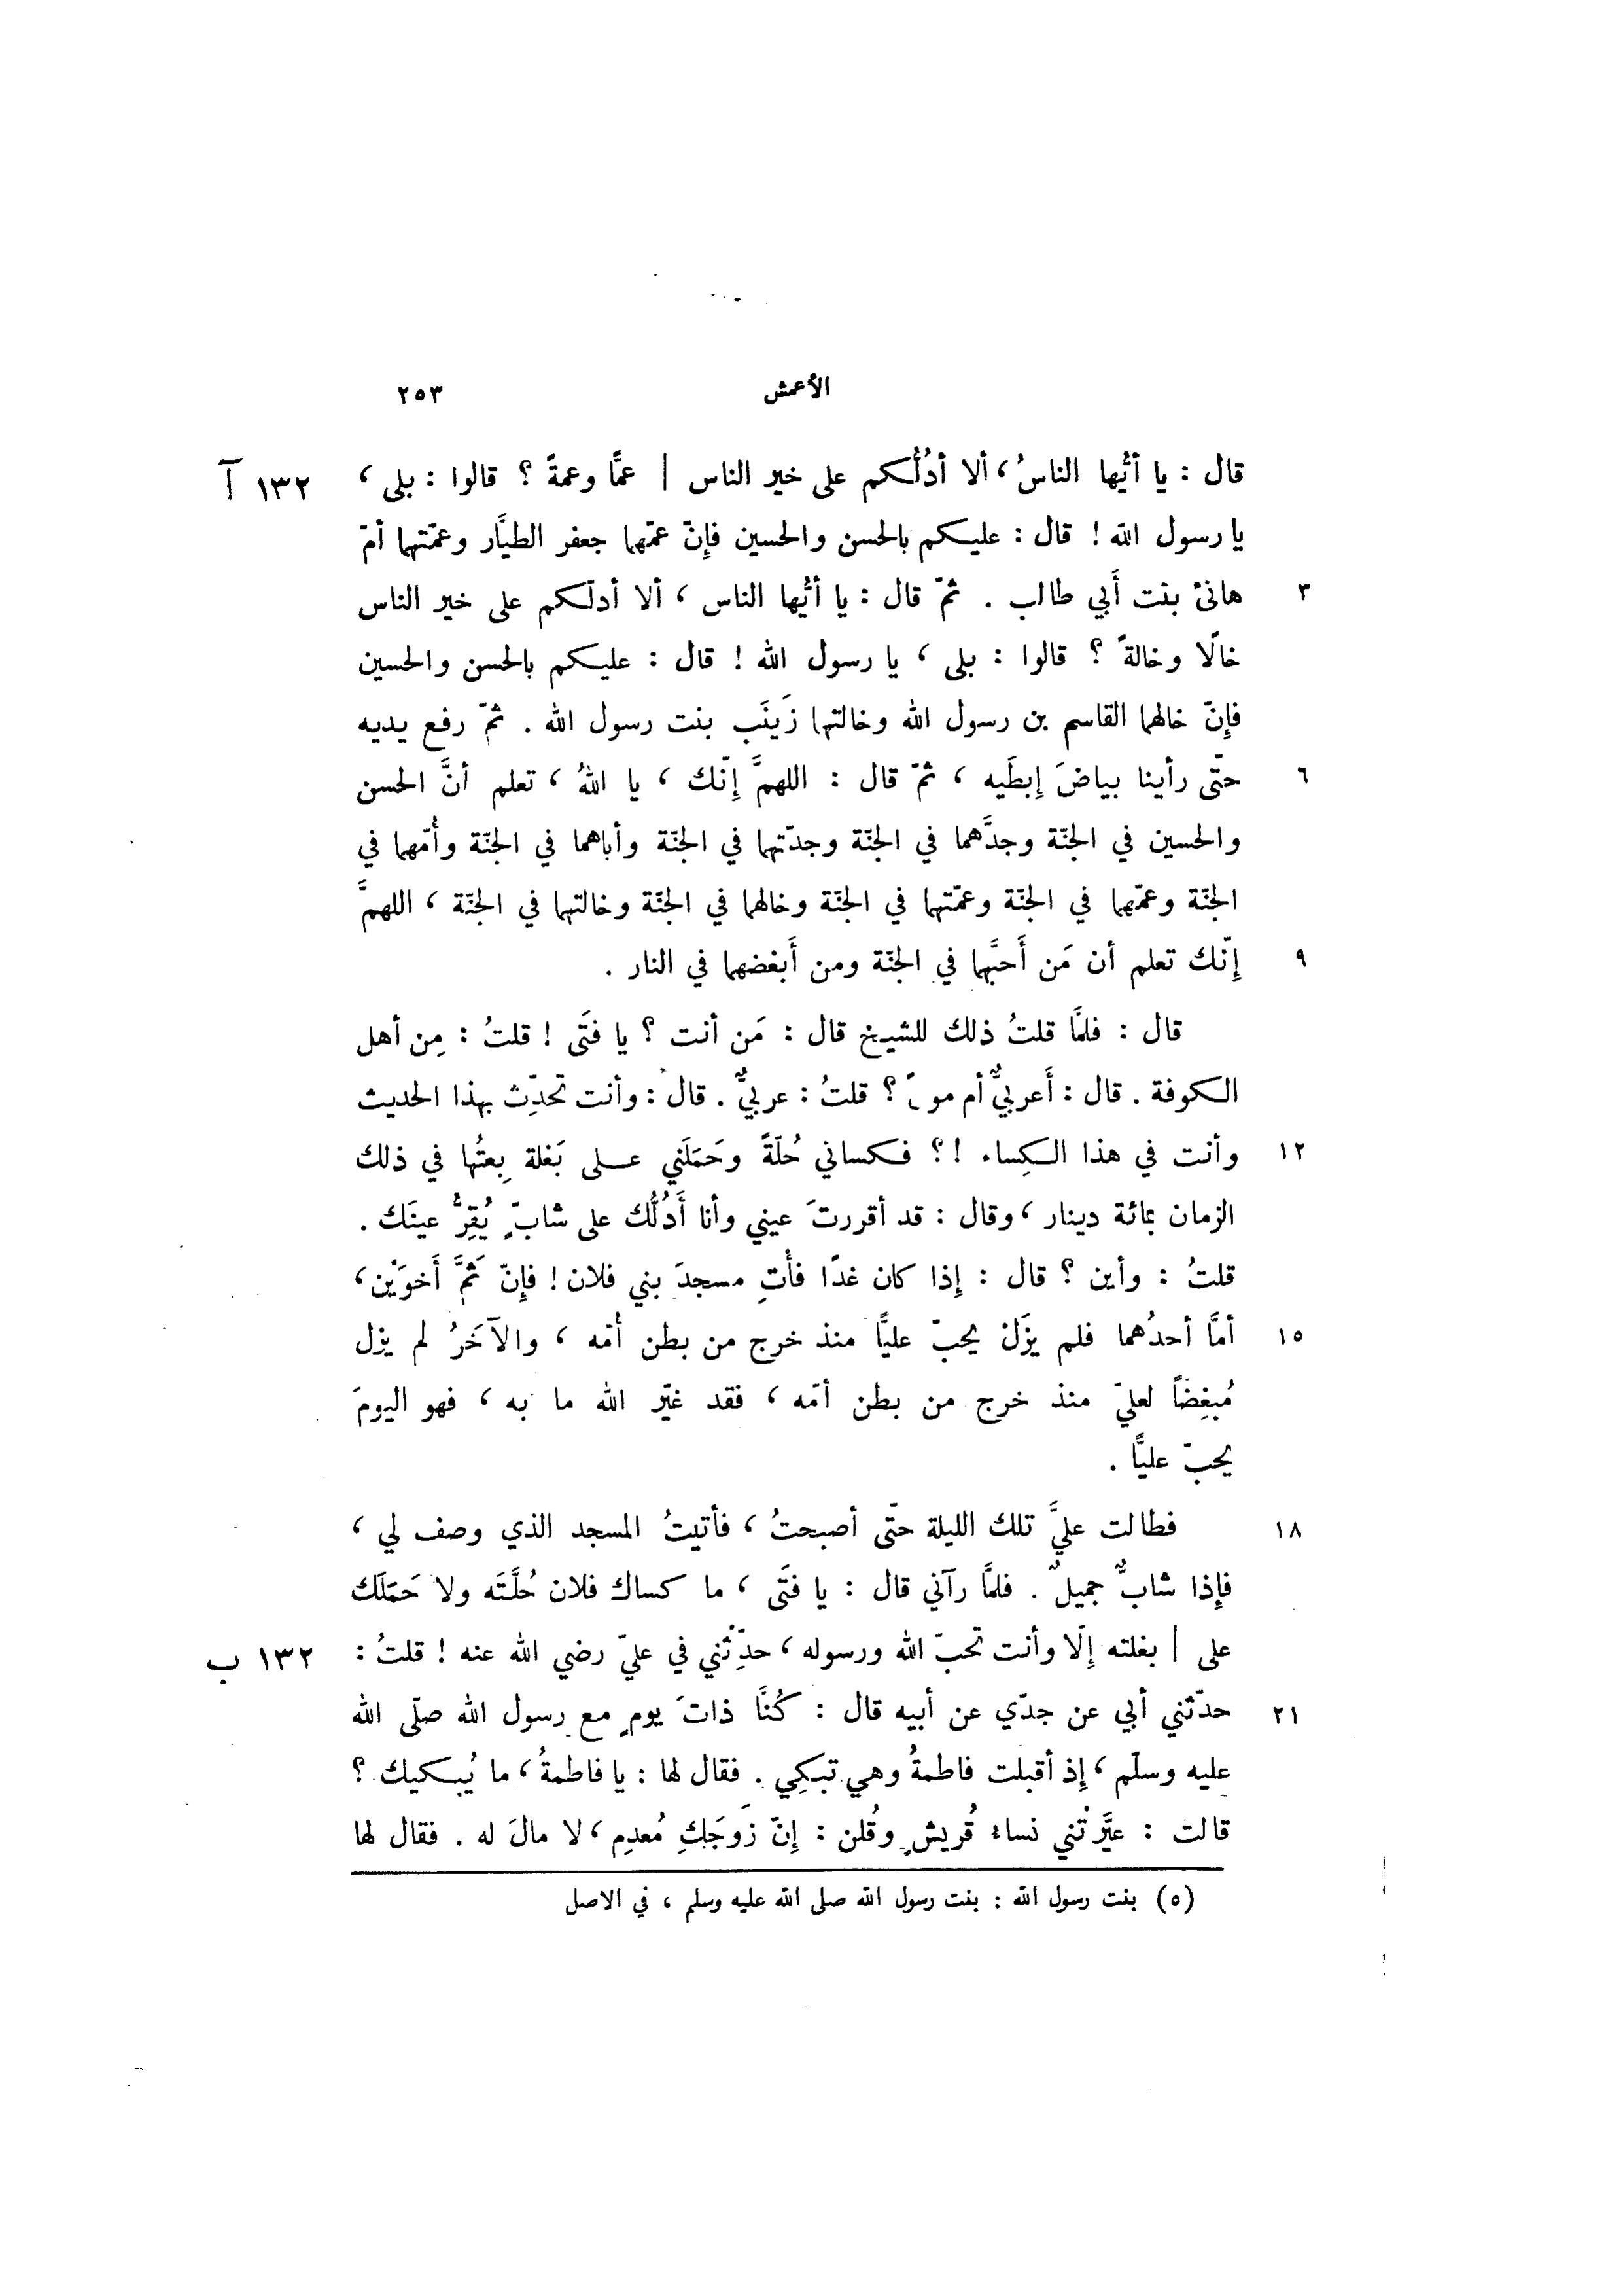 الأعمش ٢٥٣
قال : يا أيُّها الناسُ ، ألا أدُلُّكم على خير الناس | عمًّا وعمةً ؟ قالوا : بلى ، ١٣٢ آ
يا رسول الله ! قال : عليكم بالحسن والحسين فإنّ عمّهما جعفر الطيَّار وعمّتهما أمّ
٣ هانئ بنت أَبي طالب . ثمّ قال : يا أيُّها الناس ، ألا أدلّكم على خير الناس
خالًا وخالةً ؟ قالوا : بلى ، يا رسول الله ! قال : عليكم بالحسن والحسين
فإنّ خالهما القاسم بن رسول الله وخالتهما زَينَب بنت رسول الله . ثمّ رفع يديه
٦ حتّى رأينا بياضَ إبطَيه ، ثمّ قال : اللهمَّ إنّك ، يا اللهُ ، تعلم أنَّ الحسن
والحسين في الجنّة وجدَّهما في الجنّة وجدّتهما في الجنّة وأباهما في الجنّة وأُمّهما في
الجنّة وعمّهما في الجنّة وعمّتهما في الجنّة وخالهما في الجنّة وخالتهما في الجنّة ، اللهمَّ
٩ إنّك تعلم أن مَن أَحبَّهما في الجنّة ومن أَبغضهما في النار .
قال : فلمَّا قلتُ ذلك للشيخ قال : مَن أنت ؟ يا فتَى ! قلتُ : مِن أهل
الكوفة . قال : أَعربيٌّ أم ؟ قلتُ : عربيٌّ . قال : وأنت تحدِّث بهذا الحديث
١٢ وأنت في هذا الكِساء !؟ فكساني حُلّةً وحَمَلَني على بَغلة بِعتُها في ذلك
الزمان بمائة دينار ، وقال : قد أقررتَ عيني وأنا أَدُلُّك على شابٍّ يُقِرُّ عينَك .
قلتُ : وأين ؟ قال : إذا كان غدًا فأْتِ مسجدَ بني فلان ! فإنّ ثَمَّ أَخوَيْن ،
١٥ أمَّا أحدُهما فلم يزَلْ يحبّ عليًّا منذ خرج من بطن أُمّه ، والآخَرُ لم يزل
مُبغِضاً لعليّ منذ خرج من بطن أمّه ، فقد غيّر الله ما به ، فهو اليومَ
يحبّ عليًّا .
١٨ فطالت عليَّ تلك الليلة حتّى أصبحتُ ، فأتيتُ المسجد الذي وصف لي ،
فإذا شابٌّ جميلٌ . فلمَّا رآني قال : يا فتَى ، ما كساك فلان حُلَّتَه ولا حَمَلَك
على | بغلته إلّا وأنت تحبّ الله ورسوله ، حدِّثْني في عليّ رضي الله عنه ! قلتُ : ١٣٢ ب
٢١ حدّثني أبي عن جدّي عن أبيه قال : كُنَّا ذاتَ يومٍ مع رسول الله صلّى الله
عليه وسلّم ، إذ أقبلت فاطمةُ وهي تبكِي . فقال لها : يا فاطمةُ ، ما يُبكيك ؟
قالت : عيَّرتْني نساءُ قُريشٍ وقُلن : إنّ زَوجَكِ مُعدِم ، لا مالَ له . فقال لها
(٥) بنت رسول الله : بنت رسول الله صلى الله عليه وسلم ، في الاصل